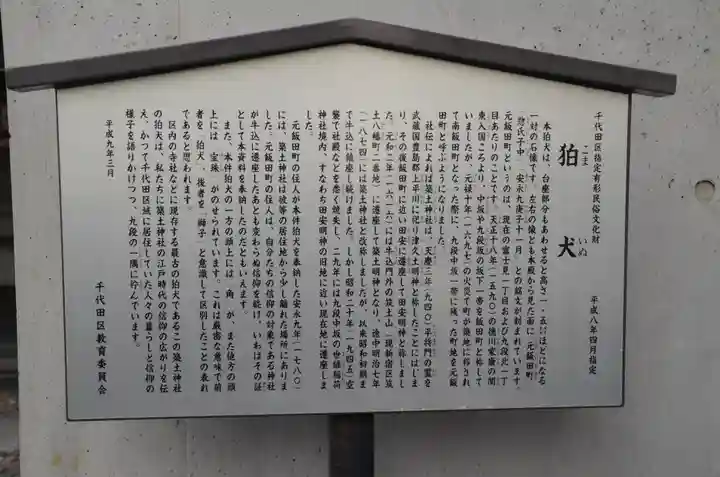 千代田区指定有形民俗文化財
平成八年四月指定
狛犬
こま いぬ
本狛犬は、台座部分もあわせると高さ一・五㍍ほどになる
一対の石像です。左右の像とも本殿から見た面に「元飯田町
惣氏子中 安永九庚子十一月」との銘文が刻まれています。
元飯田町というのは、現在の富士見一丁目および九段北一丁
目あたりのことです。天正十八年(一五九〇)の徳川家康の関
東入国ころより、中坂や九段坂の坂下一帯を飯田町と称して
いましたが、元禄十年(一六九七)の火災で町が築地に移され
て南飯田町となった際に、九段中坂一帯に残った町地を元飯
田町と呼ぶようになりました。
社伝によれば築土神社は、天慶三年(九四〇)平将門の霊を
武蔵国豊島郡上平川に祀り津久土明神と称したことにはじま
り、その後飯田町に近い田安に遷座して田安明神と称しまし
た。元和二年(一六一六)には牛込門外の筑土山(現新宿区筑
土八幡町二番地)に遷座して築土明神となり、途中明治七年
(一八七四)には築土神社と改称しましたが、以来昭和初頭ま
で牛込に鎮座し続けました。しかし昭和二十年(一九四五)空
襲で社殿などを悉く焼失し、二九年には九段中坂の世継稲荷
神社境内、すなわち田安明神の旧地に近い現在地に遷座しま
した。
元飯田町の住人が本件狛犬を奉納した安永九年(一七八〇)
には、築土神社は彼等の居住地から少し離れた場所にありま
した。元飯田町の住人は、自分たちの信仰の対象である神社
が牛込に遷座したあとも変わらぬ信仰を続け、いわばその証
として本資料を奉納したのだともいえます。
また、本件狛犬の一方の頭上には「角」が、また他方の頭
上には「宝珠」がのせられています。これは厳密な意味で前
者を「狛犬」、後者を「獅子」と意識して区別したことの表れ
であると思われます。
区内の寺社などに現存する最古の狛犬であるこの築土神社
の狛犬は、私たちに築土神社の江戸時代の信仰の広がりを伝
え、かつて千代田区域に居住していた人々の暮らしと信仰の
様子を語りかけつつ、九段の一隅に佇んでいます。
平成九年三月
千代田区教育委員会